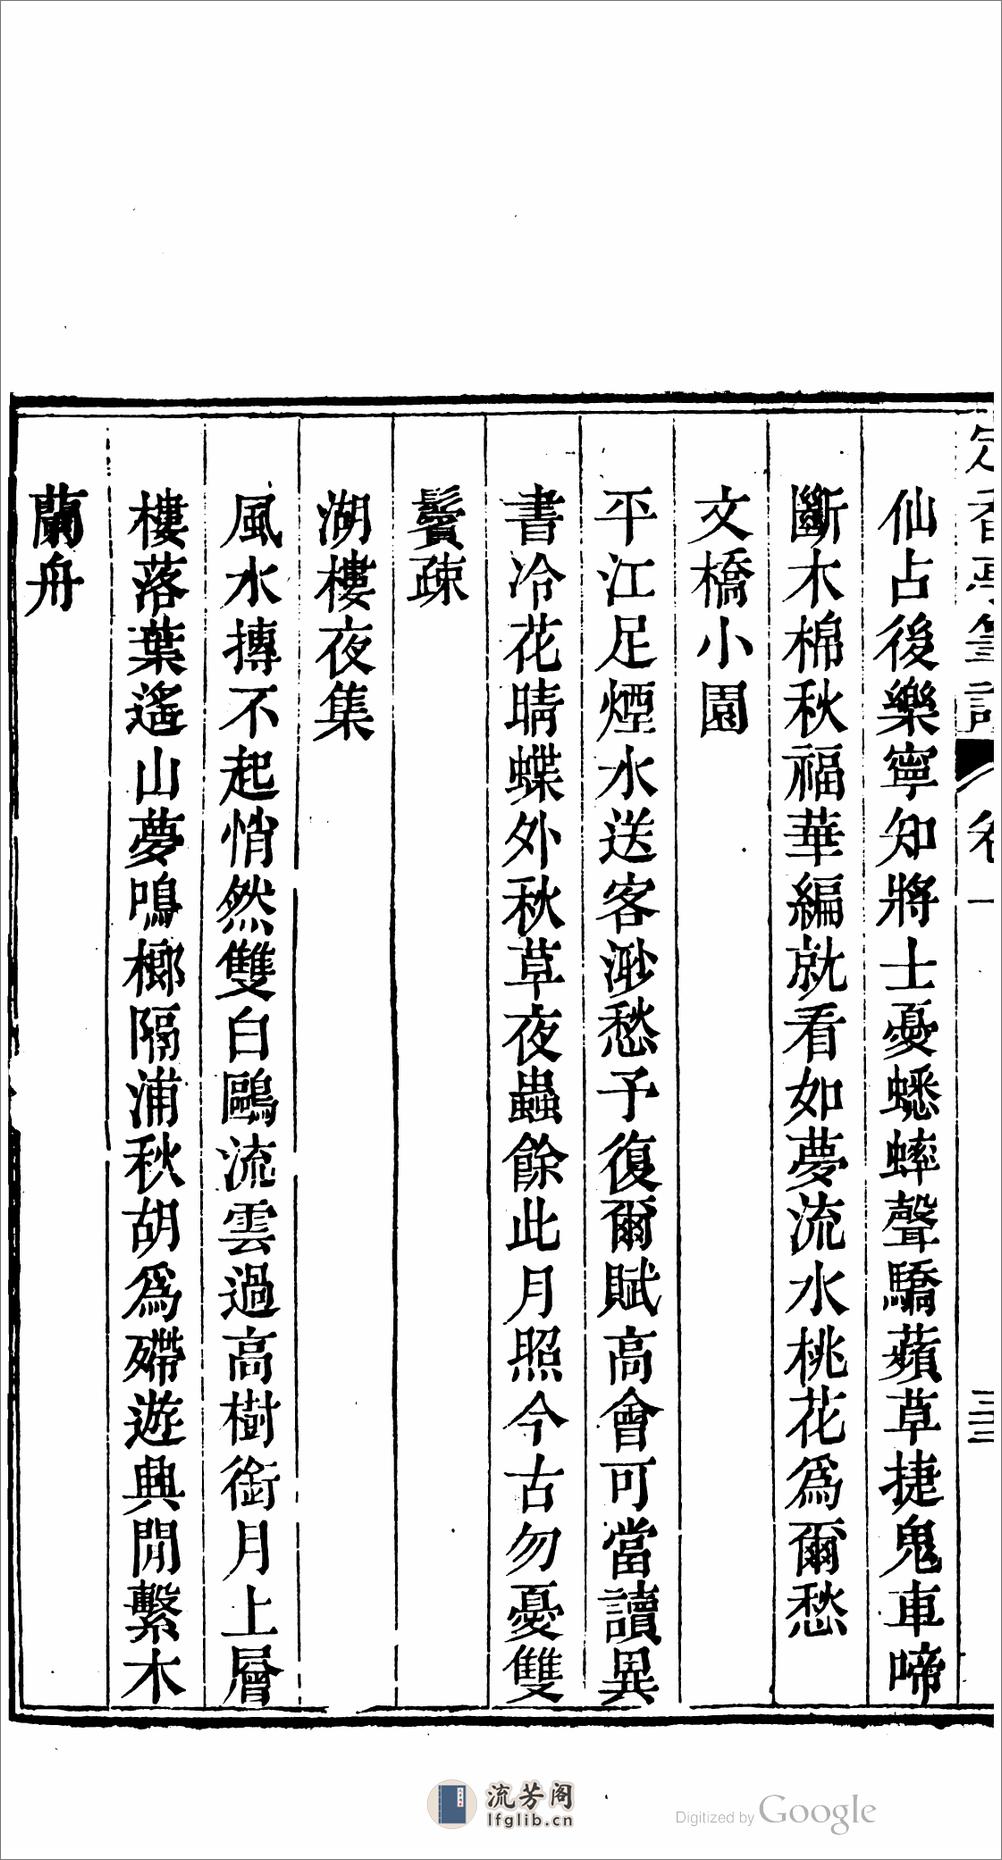 仙占後樂寧知將士憂蟋蟀聲驕蘋草捷鬼車啼
斷木棉秋福華編就看如夢流水桃花爲爾愁
文橋小園
平江足煙水送客渺愁予復爾賦高會可當讀異
書冷花晴蝶外秋草夜蟲餘此月照今古勿憂雙
鬢疎
湖樓夜集
風水摶不起悄然雙白鷗流雲過高樹銜月上層
樓落葉遙山夢鳴榔隔浦秋胡爲殢遊興閒繫木
蘭舟
流芳阁
lfglib.cn
Digitized by Google